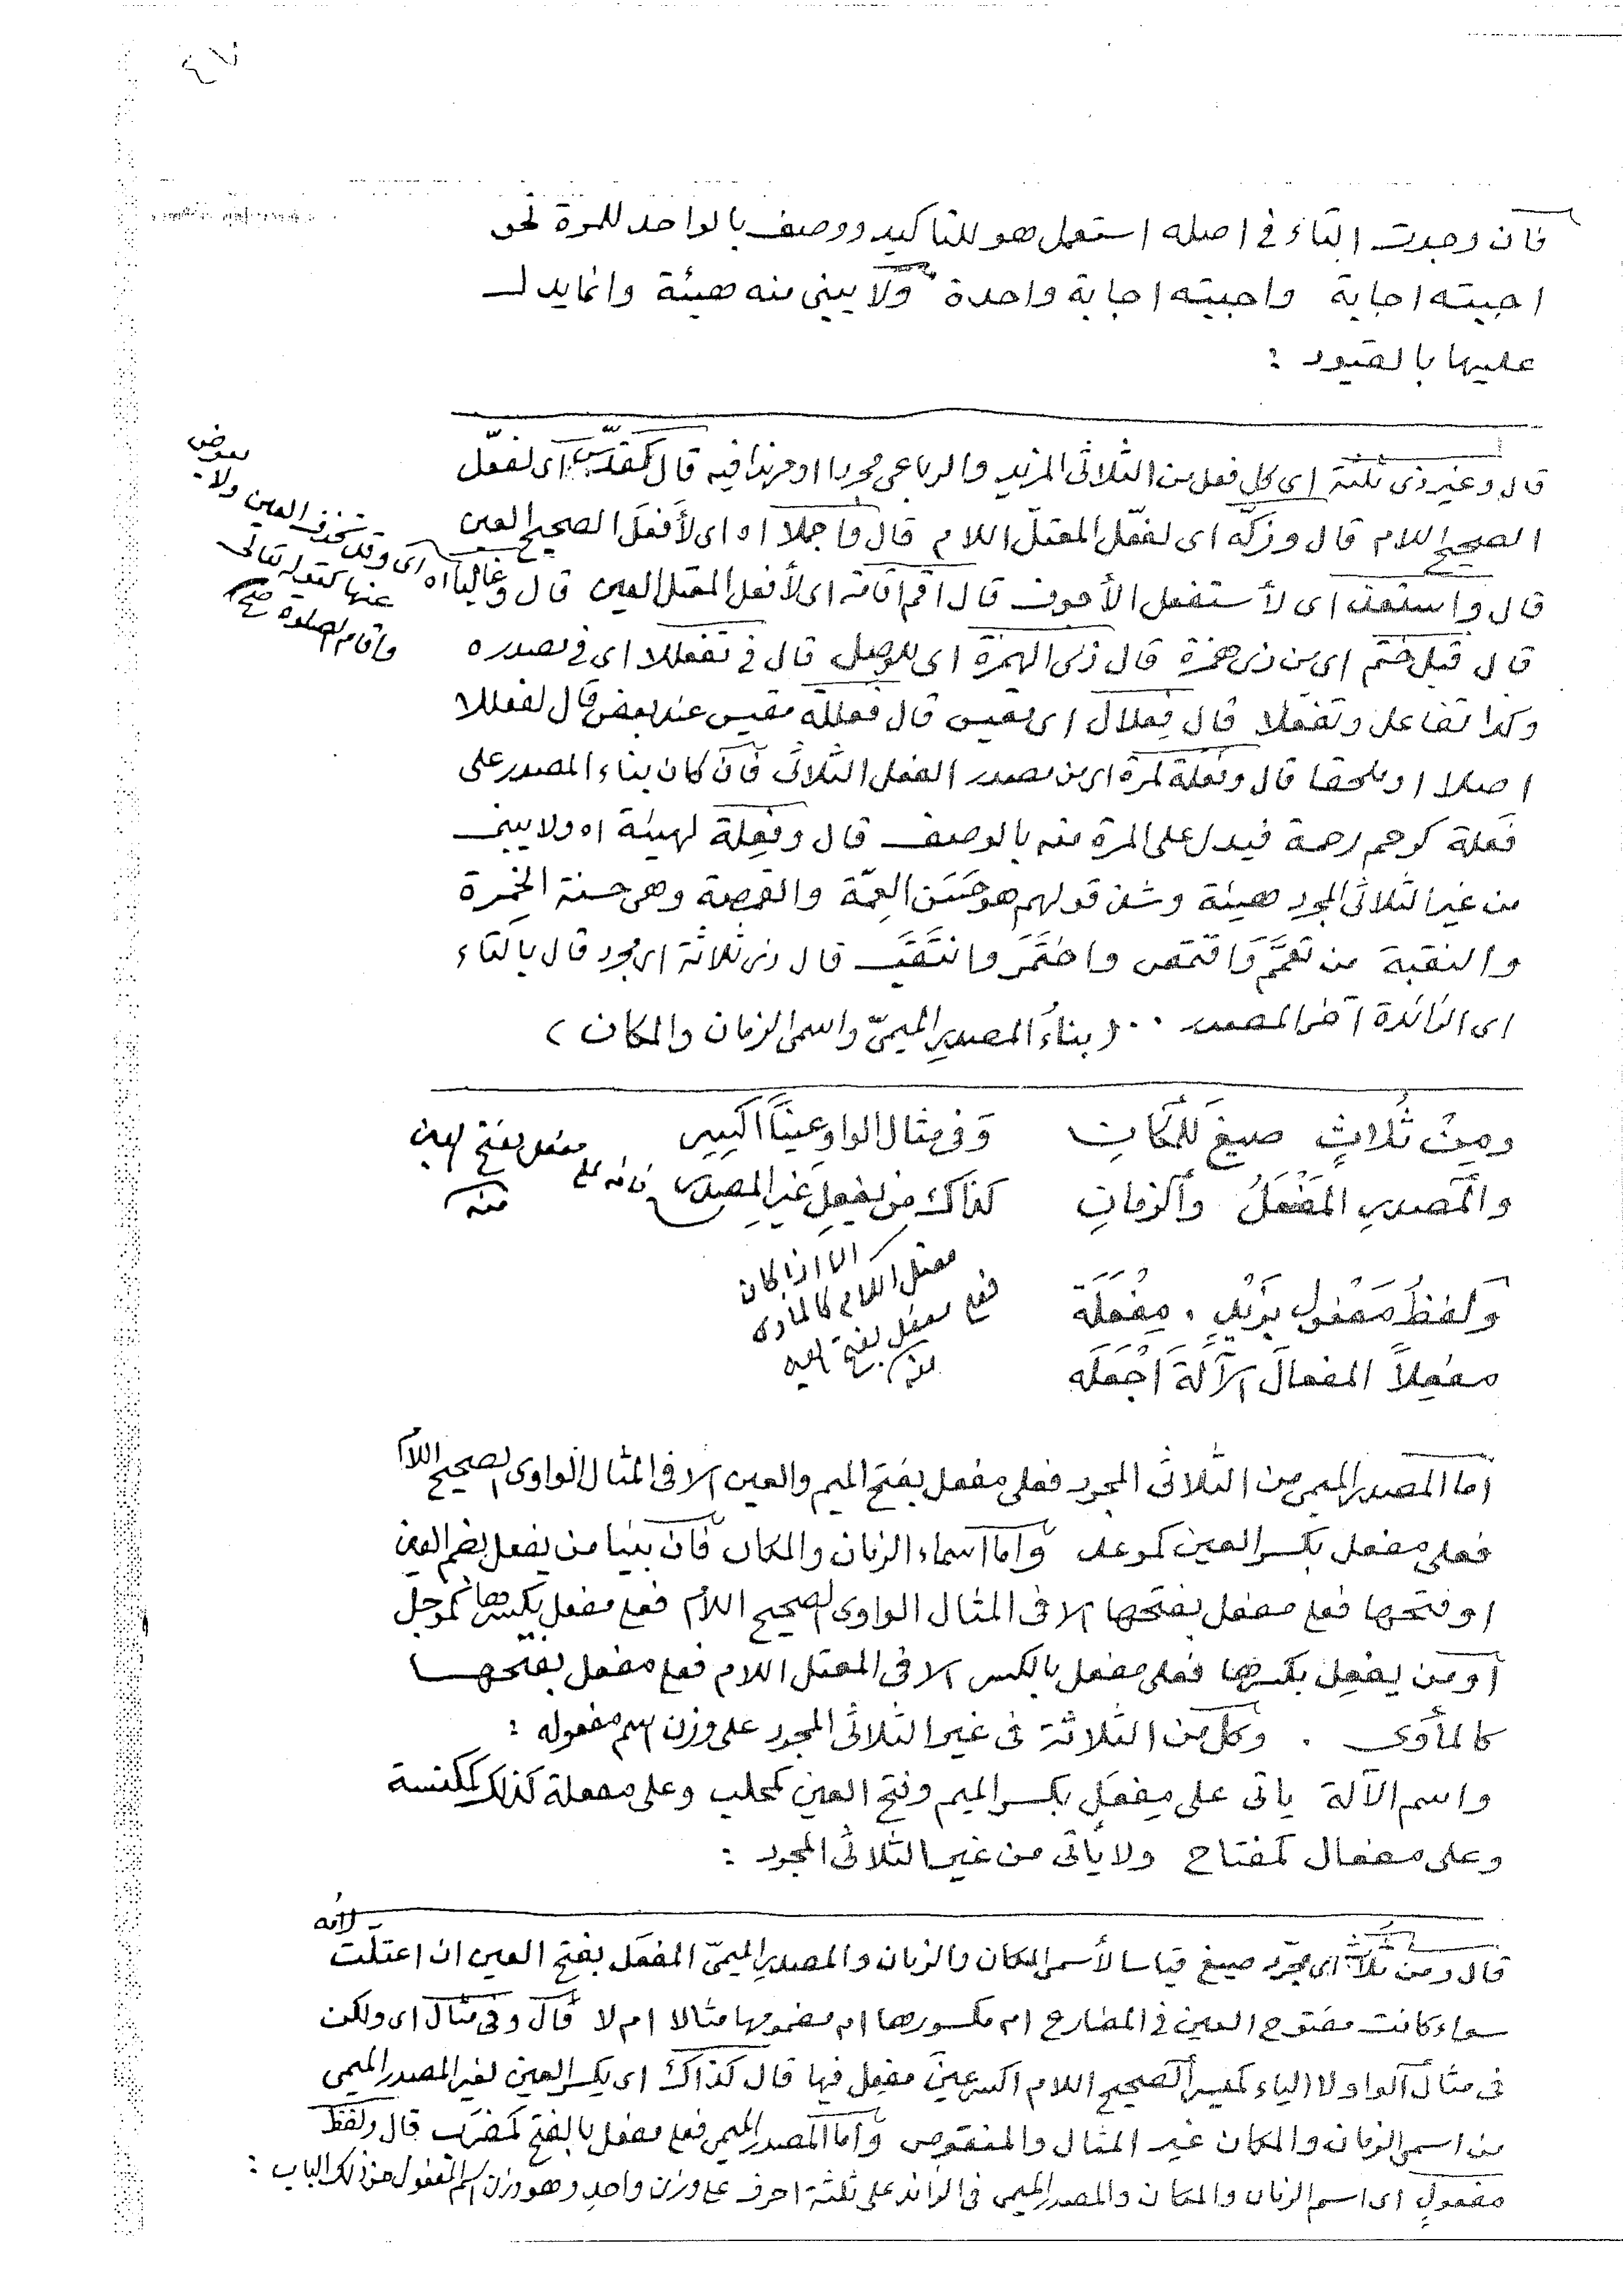 ٤٧
فان وجدت التاء في اصله استعمل هو للتاكيد ووصف بالواحد للمرة نحو
اجبته اجابة واجبته اجابة واحدة ولا يبنى منه هيئة وانما يدل
عليها بالقيود :
قال وغير ذى ثلثة اى كل فعل من الثلاثى المزيد والرباعى مجردا او مزيدا فيه قال كقدّس اى لفعّل
الصحيح اللام قال وزكّه اى لفعّل المعتلّ اللام قال واجملا اه اى لأفعل الصحيح العين
قال واستعذ اى لأستفعل الأجوف قال اقم اقامة اى لأفعل المعتل العين قال وغالبا اه اى وقد تحذف العين ولا يعوض
عنها كقوله تعالى
واقام الصلوة صح
قال قبل ختم اى من ذى همزة قال ذى الهمزة اى للوصل قال في تفعللا اى في مصدره
وكذا تفاعل وتفعّلا قال فعلال اى مقيس قال فعللة مقيس عند بعض قال لفعللا
اصلا او ملحقا قال وفعلة لمرة اى من مصدر الفعل الثلاثى فان كان بناء المصدر على
فَعلة كرحم رحمة فيدل على المرة منه بالوصف قال وفِعلة لهيئة اه ولا يبنى
من غير الثلاثى المجرد هيئة وشذ قولهم هو حَسَن العِمّة والقمصة وهى حسنة الخِمرة
والنقبة من تعمَّمَ وَاقتمص واختَمَرَ وانتَقَبَ قال ذى ثلاثة اى مجرد قال بالتاء
اى الزائدة آخر المصدر ٠٠ (بناءُ المصدرِ الميمىّ واسمى الزمان والمكان)
ومِنْ ثُلاثٍ صيغَ للمَكَانِ وَفى مثال الواو عينًا اكسِرِ
والمَصدرِ المَفْعَلُ والزمانِ كذاك مِن يفعِل غيرِ المصدرِ
فانه على مفعل بفتح العين
منه
الا اذا كان
معتل اللام كالمأوى
فعلى مفعل بفتح العين
منه
وَلفظُ مَفعولٍ بِزَيْدٍ . مِفْعَلَة
مفعلاً المفعالَ الآلَةَ اجْعَلَه
أما المصدر الميمى من الثلاثى المجرد فعلى مفعل بفتح الميم والعين الا فى المثال الواوى الصحيح اللام
فعلى مفعل بكسر العين كموعد وأما اسماء الزمان والمكان فان بنيا من يفعل بضم العين
او فتحها فعلى مفعل بفتحها الا فى المثال الواوى الصحيح اللام فعلى مفعل بكسرها كموجل
أو من يفعِل بكسرها فعلى مفعل بالكسر الا فى المعتل اللام فعلى مفعل بفتحها
كالمأوى . وكل من الثلاثة فى غير الثلاثى المجرد على وزن اسم مفعوله :
واسم الآلة ياتى على مِفعَلٍ بكسر الميم وفتح العين كمحلب وعلى مفعلة كذلك كمكنسة
وعلى مفعال كمفتاح ولا ياتى من غير الثلاثى المجرد :
قال ومن ثلاث اى مجرّد صيغ قياسا لأسمى المكان والزمان والمصدر الميمىّ المفعَل بفتح العين ان اعتلّت لامُه
سواء كانت مفتوح العين في المضارع ام مكسورها ام مضمومها مثالا ام لا قال وفى مثال اى ولكن
فى مثال الواو لا الياء كميسر الصحيح اللام اكسر عين مفعِل فيها قال كذاك اى بكسر العين لغير المصدر الميمى
من اسمى الزمان والمكان غير المثال والمنقوص وأما المصدر الميمى فعلى مفعل بالفتح كمضرَب قال ولفظ
مفعولٍ اى اسم الزمان والمكان والمصدر الميمى فى الزائد على ثلثة احرف على وزن واحد وهو وزن اسم المفعول من ذلك الباب :